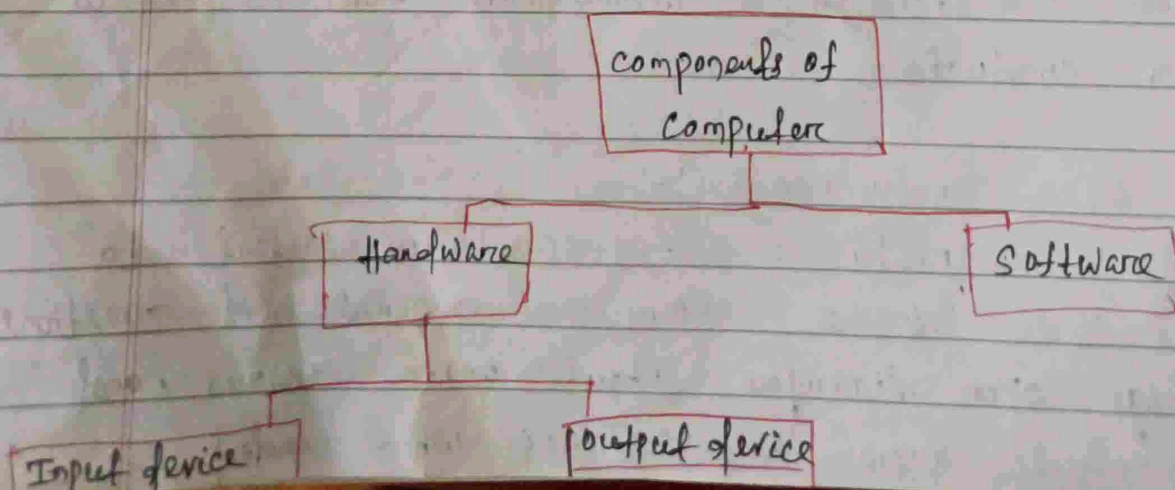 components of
computer
Hardware
Software
Input device
output device